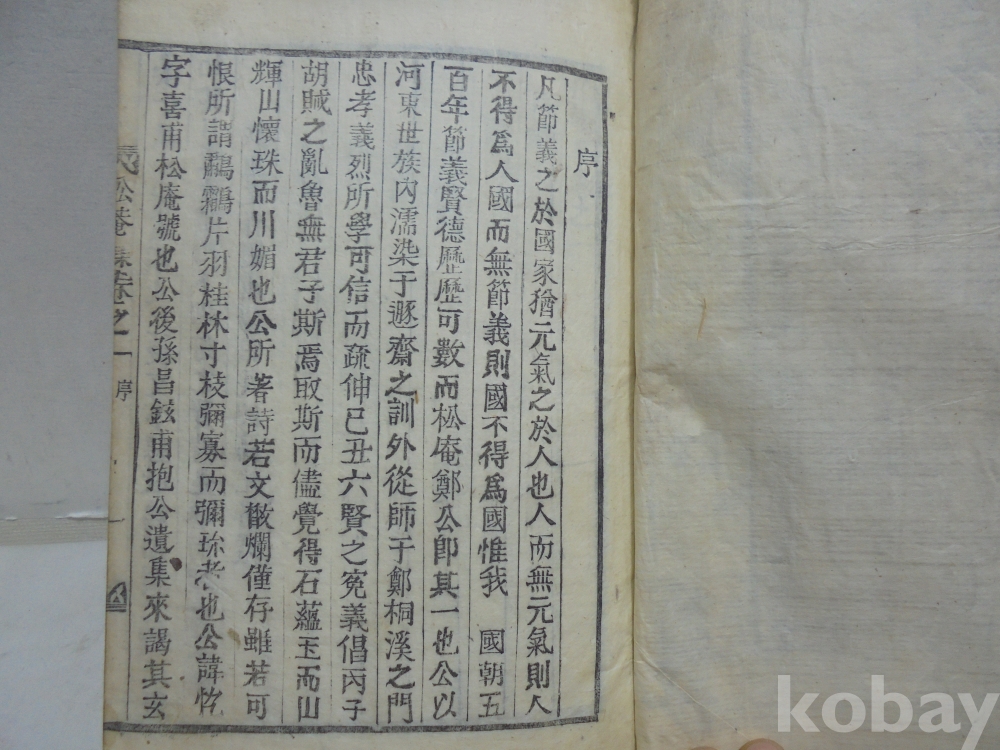 序
凡節義之於國家猶元氣之於人也人而無元氣則人
不得爲人國而無節義則國不得爲國惟我 國朝五
百年節義賢德歷歷可數而松庵鄭公卽其一也公以
河東世族內濡染于遯齋之訓外從師于鄭桐溪之門
忠孝義烈所學可信而疏伸己丑六賢之寃義倡丙子
胡賊之亂魯無君子斯焉取斯而儘覺得石蘊玉而山
輝山懷珠而川媚也公所著詩若文散爛僅存雖若可
恨所謂鸘片羽桂林寸枝彌寡而彌珍者也公諱
字喜甫松庵號也公後孫昌鉉甫抱公遺集來謁其玄
松菴 卷之一 序 一
kobay